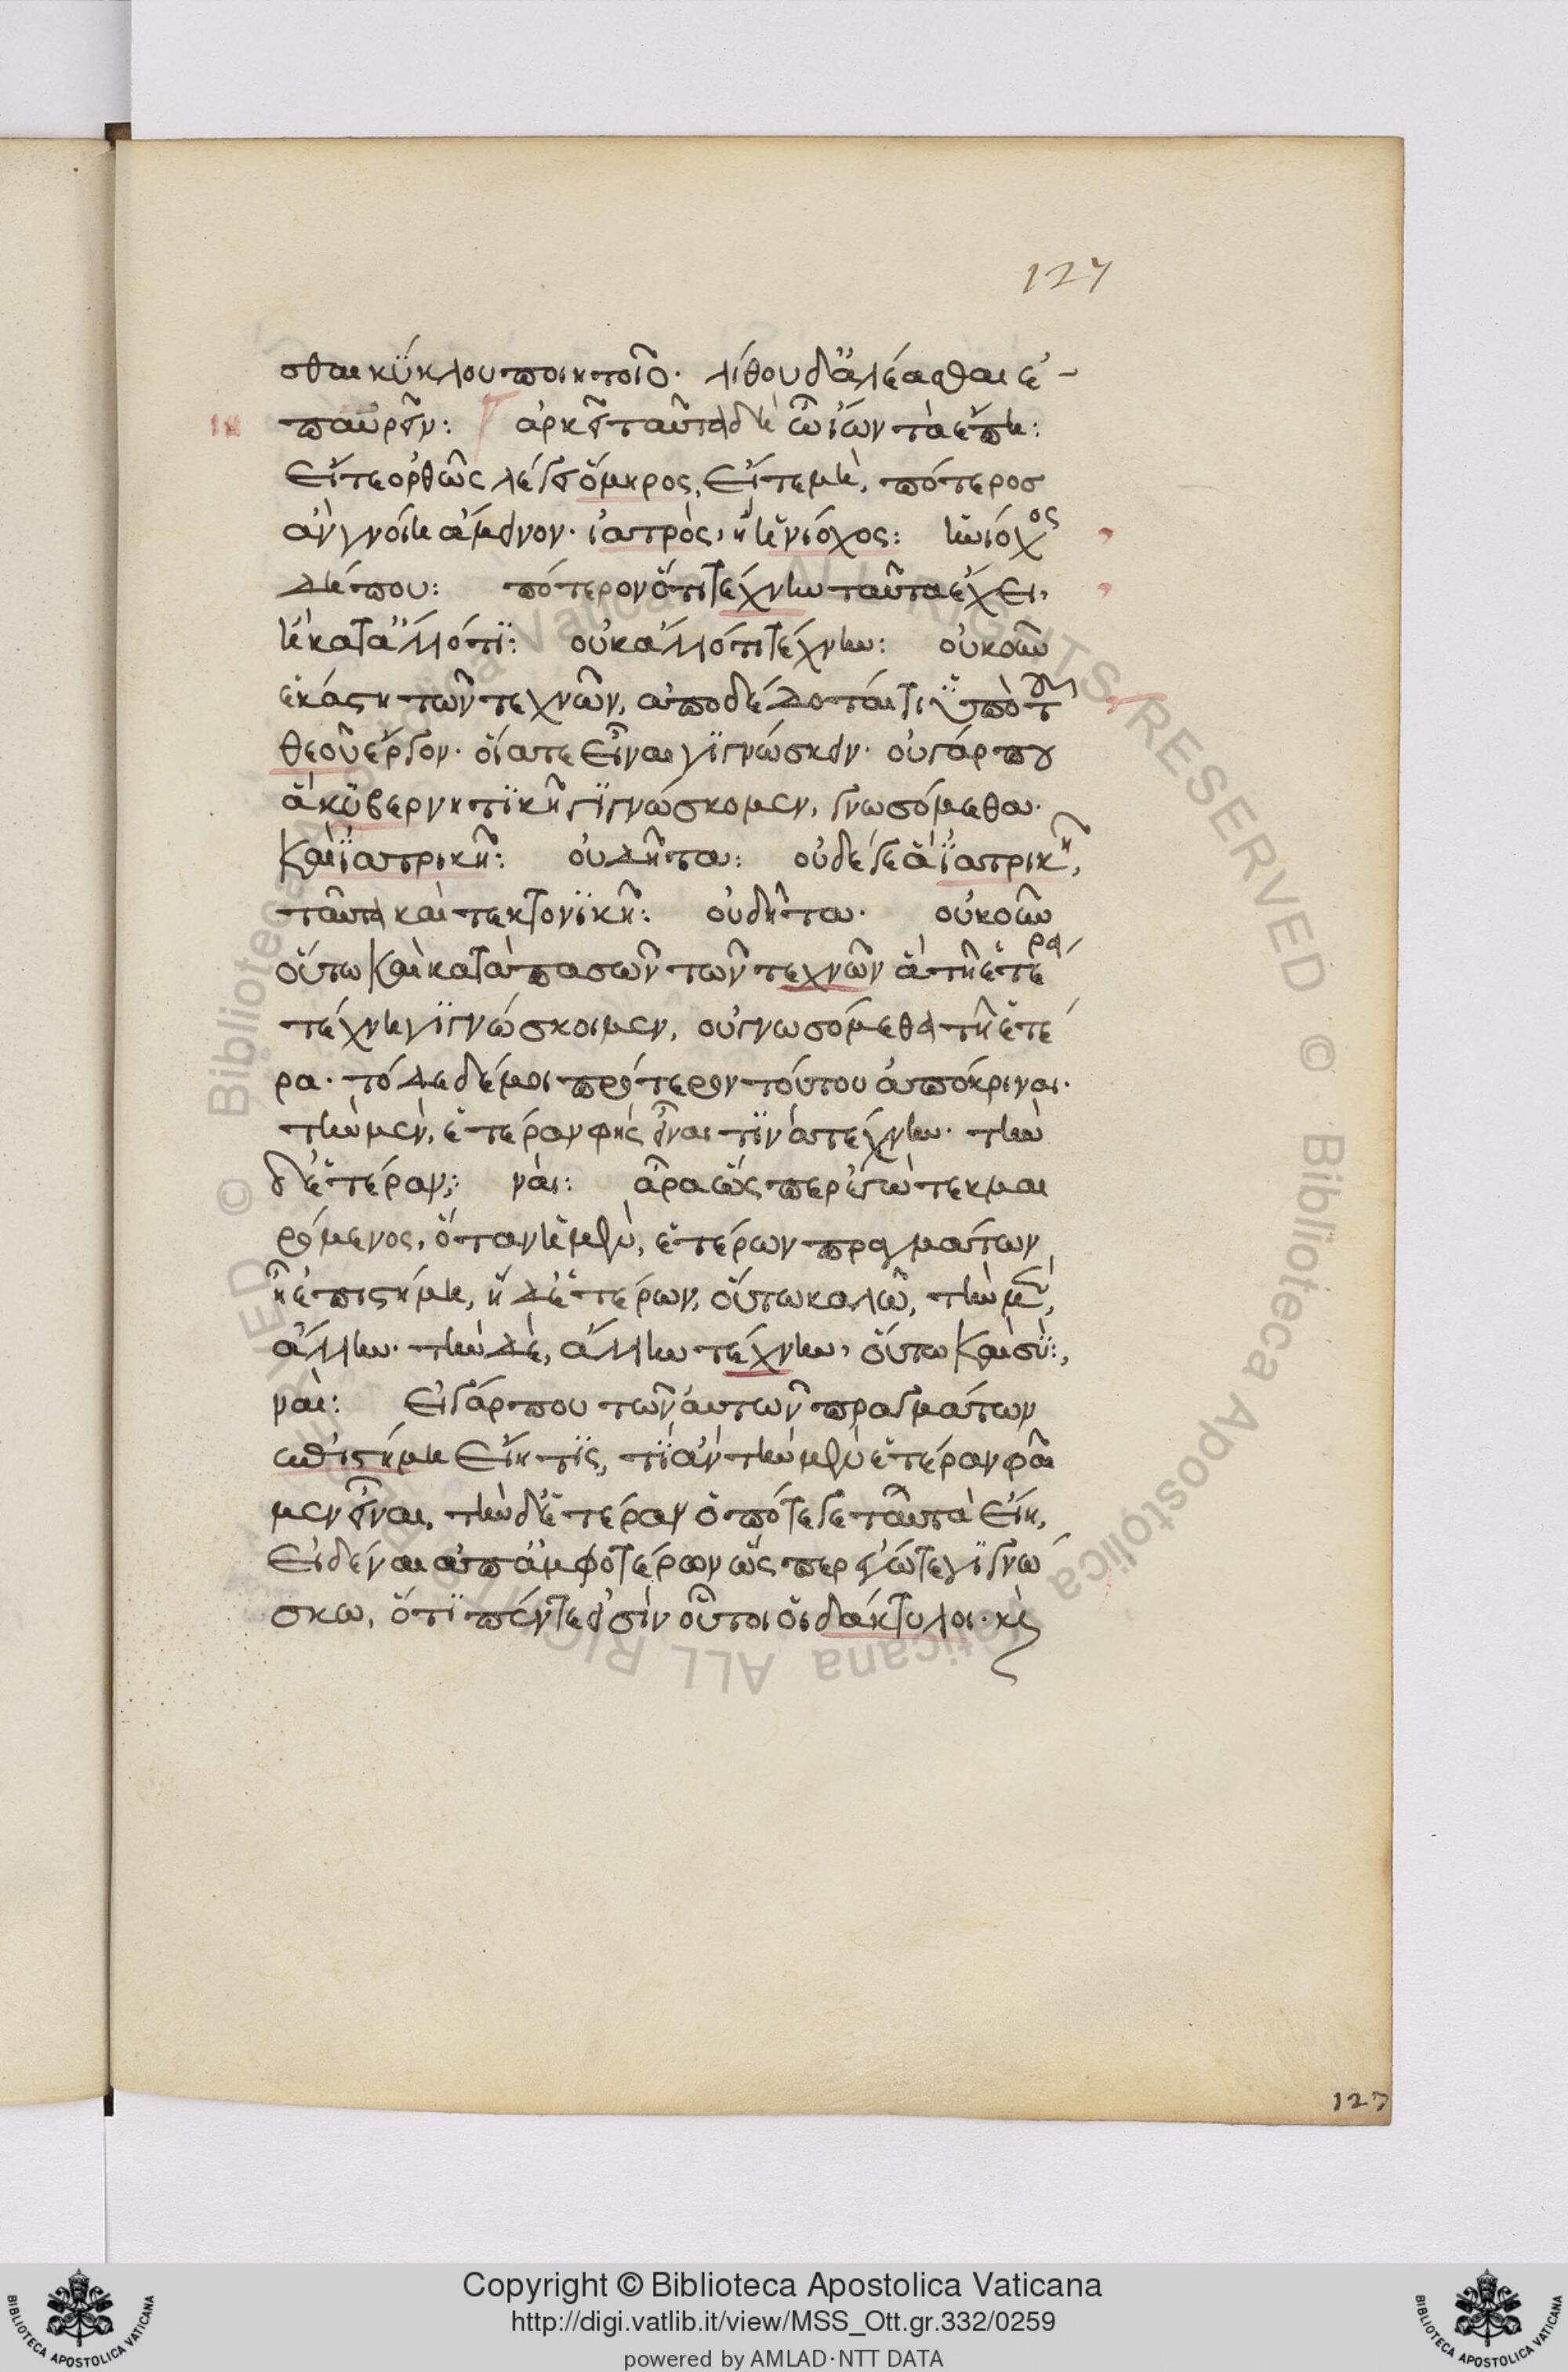 127
σθαι κύκλου ποιητοῖο· λίθου δ᾽ ἀλέασθαι ἐ-
παυρεῖν: ἀρκεῖ ταῦτα δὴ ὦ ἴων τὰ ἔπη:
εἴτε ὀρθῶς λέγει ὅμηρος, εἴτε μὴ, πότερος
ἂν γνοίη ἄμεινον· ἰατρὸς, ἢ ἡνίοχος: ἡνίοχος
δήπου: πότερον ὅτι τέχνην ταύτην ἔχει,
ἢ κατ᾽ ἄλλό τι: οὐκ ἀλλ᾽ ὅτι τέχνην: οὐκοῦν
ἑκάστη τῶν τεχνῶν, ἀποδέδοταί τι ὑπὸ τοῦ
θεοῦ ἔργον· οἵα τε εἶναι γιγνώσκειν· οὐ γάρ που
ἃ κυβερνητικῇ γιγνώσκομεν, γνωσόμεθα·
καὶ ἰατρικῇ: οὐ δῆτα: οὐδέ γε ἃ ἰατρικῇ,
ταῦτα καὶ τεκτονικῇ: οὐ δῆτα· οὐκοῦν
οὕτω καὶ κατὰ πασῶν τῶν τεχνῶν ἃ τῇ ἑτέρα
τέχνη γιγνώσκομεν, οὐ γνωσόμεθα τῇ ἑτέ
ρα· τὸ δὲ δέ μοι πρότερον τούτου ἀπόκριναι·
τὴν μὲν, ἑτέραν φῂς εἶναι τινὰ τέχνην· τὴν
δ᾽ ἑτέραν; ναί: ἆρα ὥσπερ ἐγὼ τεκμαι
ρόμενος, ὅταν ἡ μὲν, ἑτέρων πραγμάτων
ᾖ ἐπιστήμη, ἡ δ᾽ ἑτέρων, οὕτω καλῶ, τὴν μὲν,
ἄλλην· τὴν δὲ, ἄλλην τέχνην, οὕτω καὶ σύ:,
ναί: εἰ γάρ που τῶν αὐτῶν πραγμάτων
ἐπιστήμη εἴη τις, τί ἂν τὴν μὲν ἑτέραν φαῖ
μεν εἶναι, τὴν δ᾽ ἑτέραν ὁπότε γε ταῦτα εἴη,
εἰδέναι ἀπ᾽ ἀμφοτέρων ὥσπερ ἐγώ τε γιγνώ
σκω, ὅτι πέντε εἰσὶν οὗτοι οἱ δάκτυλοι· καὶ
127
Copyright © Biblioteca Apostolica Vaticana
http://digi.vatlib.it/view/MSS_Ott.gr.332/0259
powered by AMLAD·NTT DATA
BIBLIOTECA APOSTOLICA VATICANA
BIBLIOTECA APOSTOLICA VATICANA